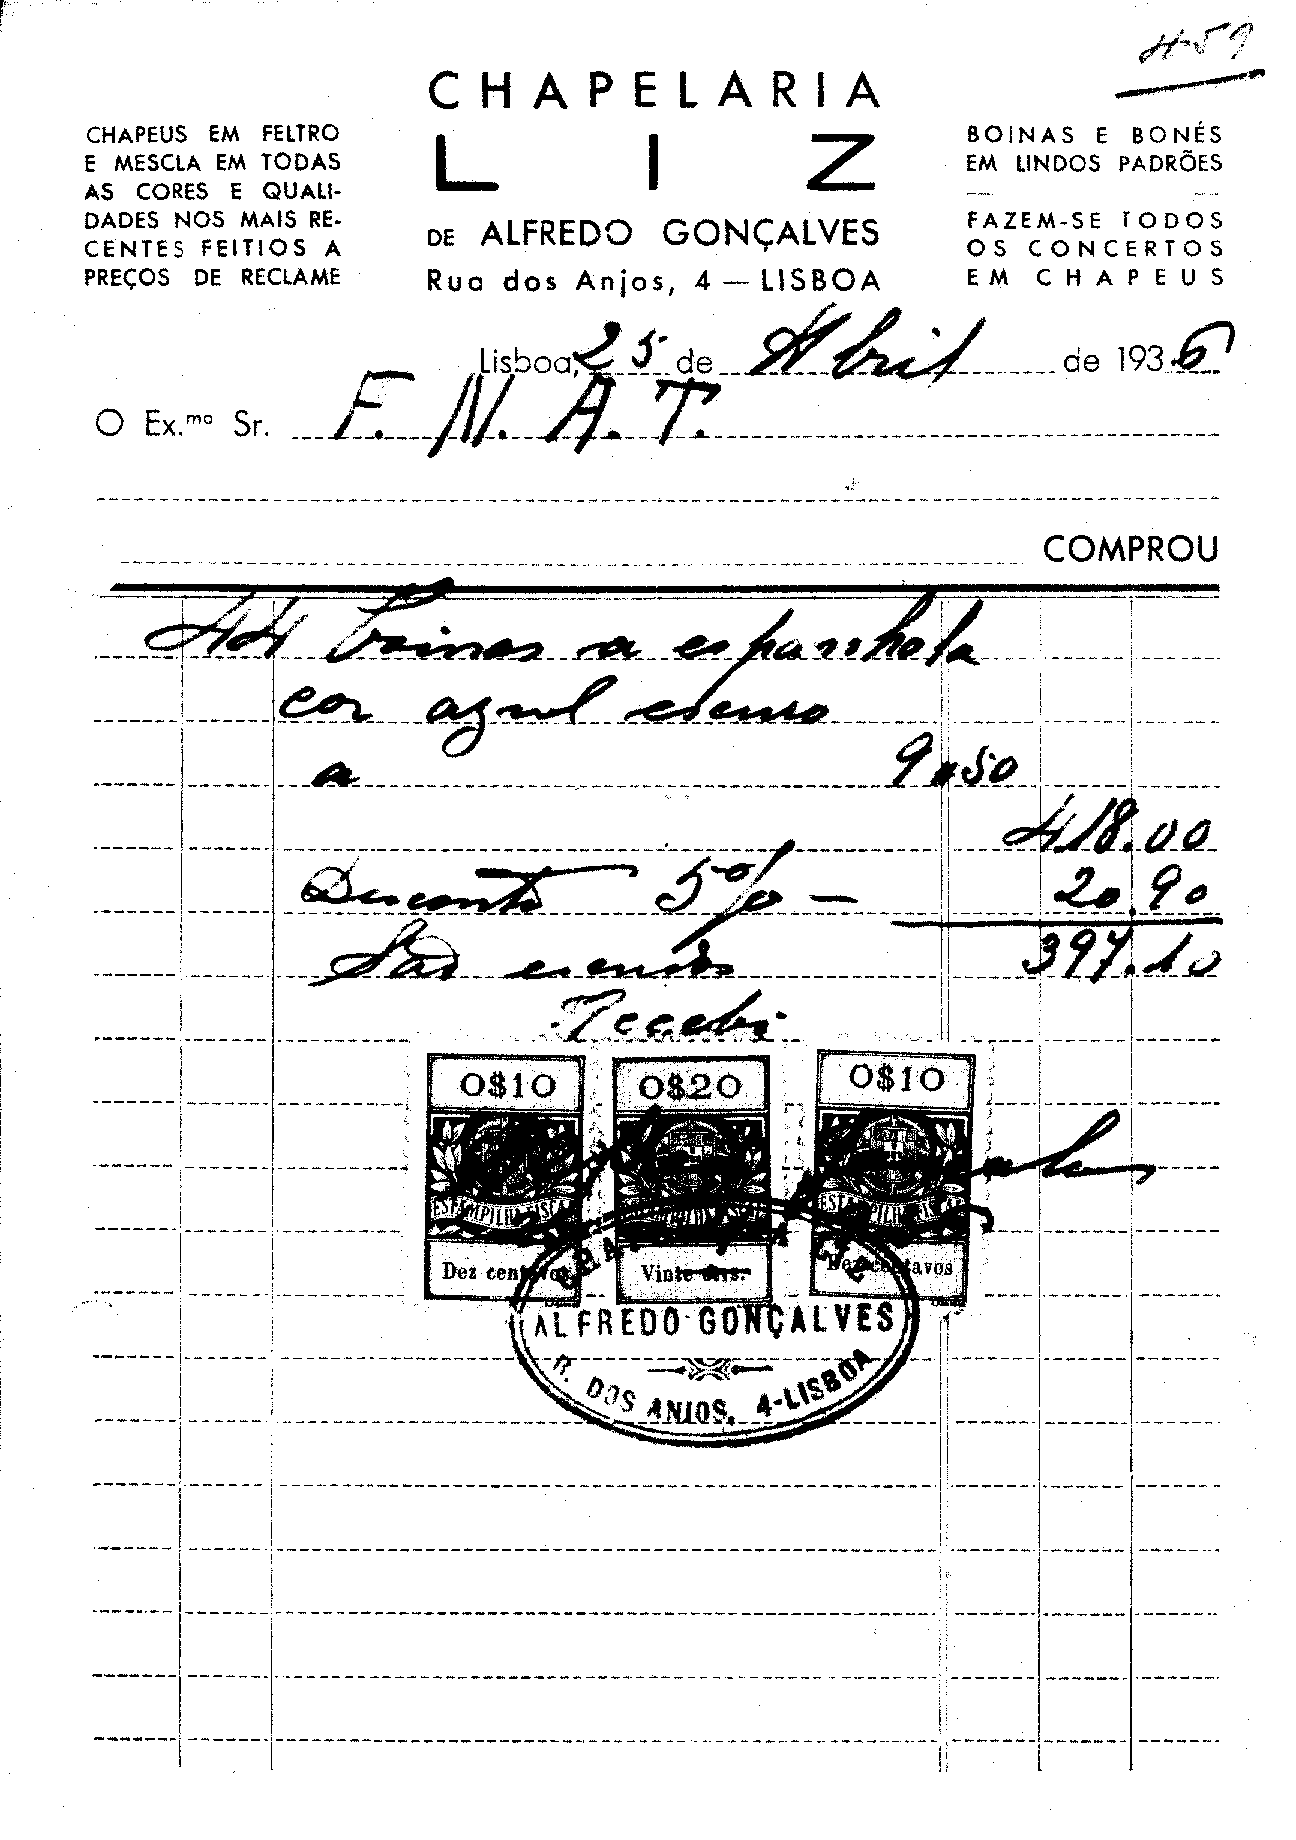 459
CHAPELARIA
LIZ
DE ALFREDO GONÇALVES
Rua dos Anjos, 4 — LISBOA
CHAPEUS EM FELTRO
E MESCLA EM TODAS
AS CORES E QUALI-
DADES NOS MAIS RE-
CENTES FEITIOS A
PREÇOS DE RECLAME
BOINAS E BONÉS
EM LINDOS PADRÕES
FAZEM-SE TODOS
OS CONCERTOS
EM CHAPEUS
Lisboa, 25 de Abril de 1936
O Ex.mo Sr. F. N. A. T.
COMPROU
44 boinas a espanhola
cor azul escuro
a 9.50
418.00
Desconto 5% — 20.90
São escudos 397.10
Recebi
0$10 0$20 0$10
ESTAMPILHA FISCAL ESTAMPILHA FISCAL ESTAMPILHA FISCAL
Dez centavos Vinte ctvs. Dez centavos
CHAPELARIA LIZ
ALFREDO GONÇALVES
R. DOS ANJOS, 4-LISBOA